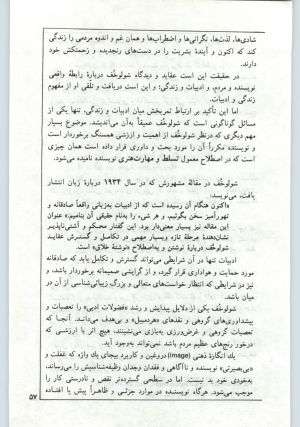 شادی‌ها، لذت‌ها، نگرانی‌ها و اضطراب‌ها و همان غم و اندوه مردمی را زندگی
کند که اکنون و آیندهٔ بشریت را در دست‌های رنجدیده و زحمتکش خود
دارند.
در حقیقت این است عقاید و دیدگاه شولوخُف دربارهٔ رابطهٔ واقعی
نویسنده و مردم، و ادبیات و زندگی؛ و این است دریافت و تلقی او از مفهوم
زندگی و ادبیات.
اما این تأکید بر ارتباط ثمربخش میان ادبیات و زندگی، تنها یکی از
مسائل گوناگونی است که شولوخُف عمیقاً به‌آن می‌اندیشد. موضوع بسیار
مهم دیگری که درنظر شولوخُف از اهمیت و ارزشی همسنگ برخوردار است
و نویسنده مکرراً آن را مورد بحث و داوری قرار داده است همان چیزی
است که در اصطلاح معمول تسلط و مهارت‌هنری نویسنده نامیده می‌شود.
شولوخُف در مقالهٔ مشهورش که در سال ۱۹۳۴ دربارهٔ زبان انتشار
یافت، می‌نویسد:
«اکنون هنگام آن رسیده است که از ادبیات به‌زبانی واقعاً صادقانه و
تهورآمیز سخن بگوئیم، و هر شیء را به‌نام حقیقی آن بنامیم.» عنوان
این مقاله نیز بسیار معنی‌دار بود. این گفتار محکم و آشتی‌ناپذیر
نشان‌دهندهٔ مرحلهٔ تازه وبسیار مهمی در تکامل و گسترش عقاید
شولوخُف دربارهٔ نوشتن و به‌اصطلاح «نوشتهٔ خلاق» است.
ادبیات تنها در آن شرایطی می‌تواند گسترش و تکامل یابد که صادقانه
مورد حمایت و هواداری قرار گیرد، و از گرایشی صمیمانه برخوردار باشد، و
نیز در شرایطی که انتظار خواست‌های متعالی و بزرگ زیبائی‌شناسی از آن در
میان باشد.
شولوخُف یکی از دلایل پیدایش و رشد «فضولات ادبی» را تعصبات و
پیشداوری‌های گروهی و نقدهای «هردمبیل» و بی‌هدف می‌داند. آنجا که
تعصبات گروهی و غرض‌ورزی به‌بازی می‌نشیند، هیچ اثر با ارزشی که
درخور رنج‌های عظیم مردم باشد نمی‌تواند به‌وجود آید.
یك انگارهٔ ذهنی (image) دروغین و کاربرد بیجای یك واژه که غفلت و
«بی‌بصیرتی» نویسنده و ناآگاهی و فقدان وجدان وظیفه‌شناسیش را می‌رساند،
به‌خودی خود بد نیست. اما در سطحی گسترده‌تر نقص و نادرستی کار را
موجب می‌شود. هرگاه نویسنده در موارد جزئی و ظاهراً پیش پا افتاده
۵۷